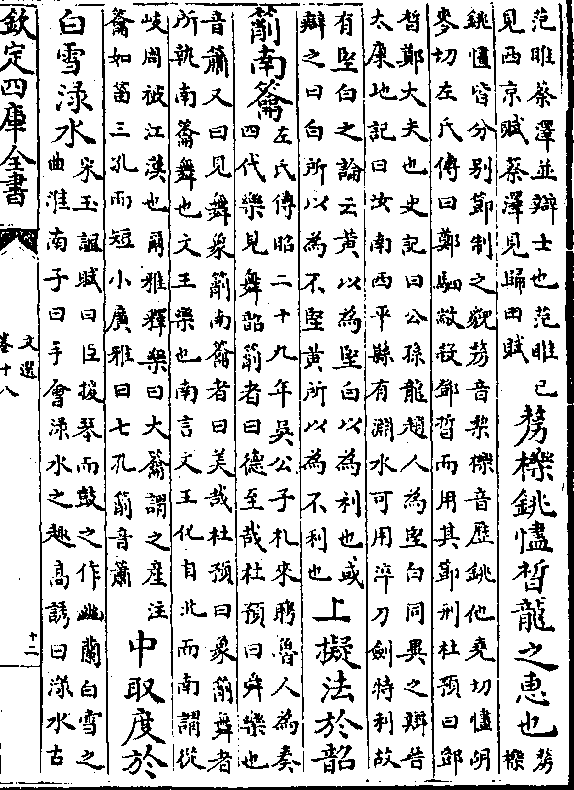 范睢蔡澤並辯士也范睢已
見西京賦蔡澤見歸田賦
剺櫟銚㦎晳龍之惠也
剺
櫟
銚㦎皆分別節制之貌剺音梨櫟音歷銚他堯切㦎胡
麥切左氏傳曰鄭駟歂殺鄧晳而用其節刑杜預曰鄧
晳鄭大夫也史記曰公孫龍趙人為堅白同異之辯晉
太康地記曰汝南西平縣有淵水可用淬刀劍特利故
有堅白之論云黃以為堅白以為利也或
辯之曰白所以為不堅黃所以為不利也
上擬法於韶
箾南籥
左氏傳昭二十九年吳公子札來聘魯人為奏
四代樂見舞韶箾者曰德至哉杜預曰舜樂也
音簫又曰見舞象箾南籥者曰美哉杜預曰象箾舞者
所執南籥舞也文王樂也南言文王化自北而南謂從
岐周被江漢也爾雅釋樂曰大籥謂之産注
籥如笛三孔而短小廣雅曰七孔箾音簫
中取度於
白雪渌水
宋玉諷賦曰臣援琴而鼓之作幽蘭白雪之
曲淮南子曰手會渌水之趣高誘曰渌水古
欽定四庫全書
文選
卷十八
十二